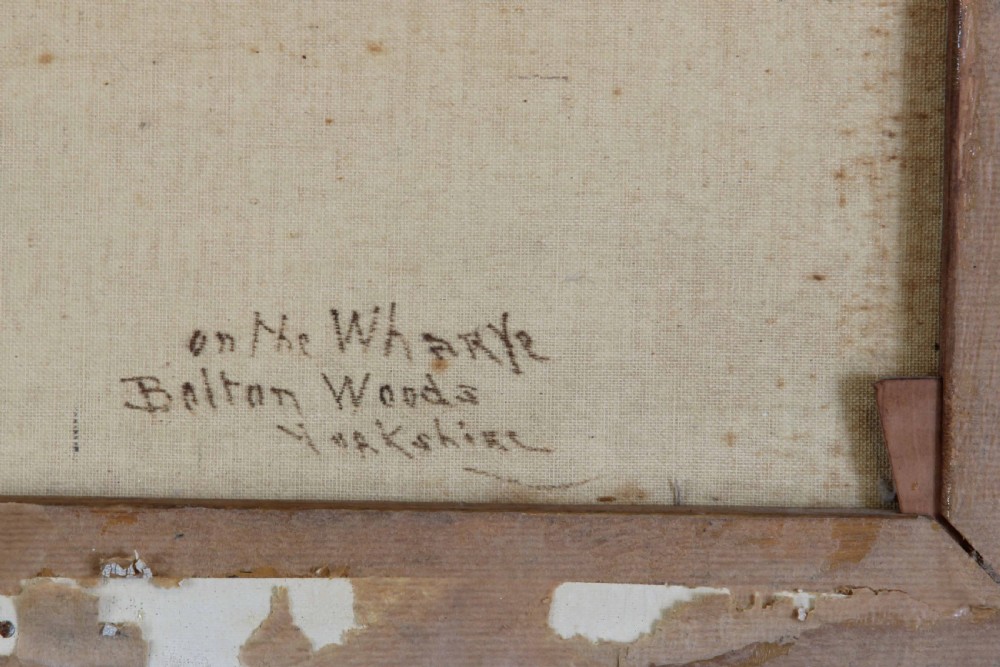 on the Wharfe
Bolton Woods
Yorkshire